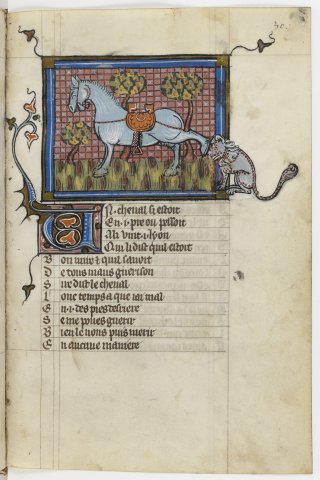 30.
U N. cheval si estoit
En .i. pre ou pessoit
La vint .i. lyon
Qui li dist quil estoit
Bon mire & quil savoit
De tous maus guerison
Sire dist le cheval
Lonc temps a que iai mal
En .i. des pies desriere
Se me poues guerir
Bien le vous puis merir
En aucune maniere